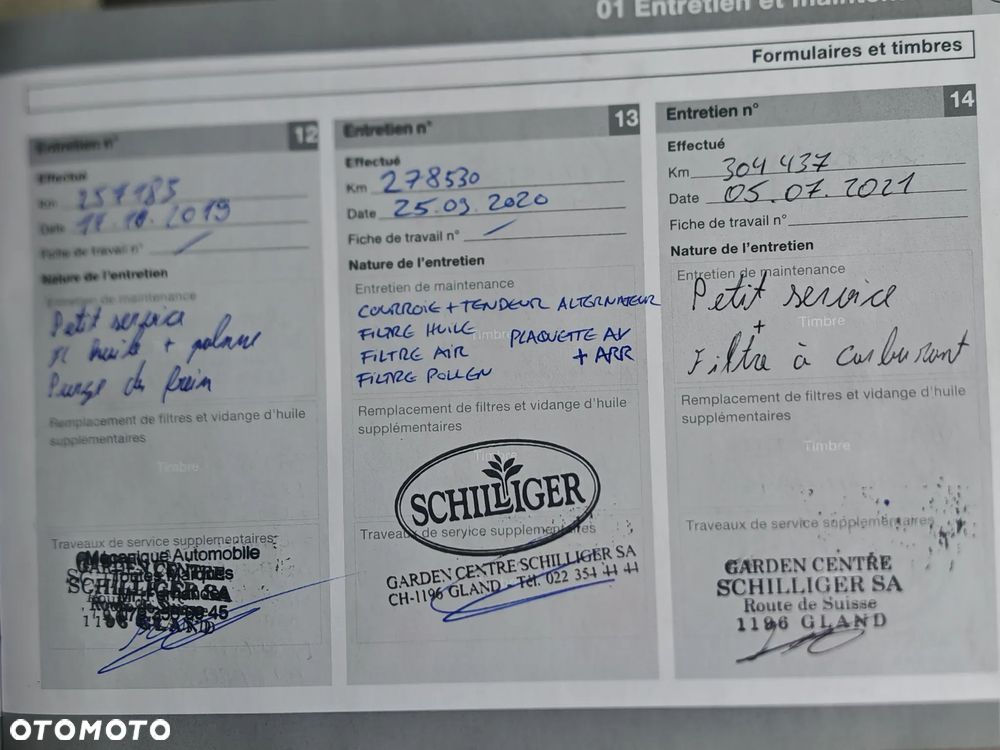 01 Entretien et
Formulaires et timbres
Entretien n° 12
Effectué
Km 257185
Date 11.10.2019
Fiche de travail n°
Nature de l'entretien
Entretien de maintenance
Petit service
Fl huile + pollane
Purge du frein
Remplacement de filtres et vidange d'huile
supplémentaires
Timbre
Traveaux de service supplémentaires
Mécanique Automobile
Toutes Marques
GARDEN CENTRE
SCHILLIGER SA
Route de Suisse
1196 GLAND
Entretien n° 13
Effectué
Km 278530
Date 25.09.2020
Fiche de travail n°
Nature de l'entretien
Entretien de maintenance
COURROIE + TENDEUR ALTERNATEUR
FILTRE HUILE Timbre PLAQUETTE AV
FILTRE AIR + ARR
FILTRE POLLEN
Remplacement de filtres et vidange d'huile
supplémentaires
Timbre
SCHILLIGER
Traveaux de service supplémentaires
GARDEN CENTRE SCHILLIGER SA
CH-1196 GLAND - Tél. 022 354 44 44
Entretien n° 14
Effectué
Km 304 437
Date 05.07.2021
Fiche de travail n°
Nature de l'entretien
Entretien de maintenance
Petit service
+ Timbre
Filtre à carburant
Remplacement de filtres et vidange d'huile
supplémentaires
Timbre
Traveaux de service supplémentaires
GARDEN CENTRE
SCHILLIGER SA
Route de Suisse
1196 GLAND
OTOMOTO